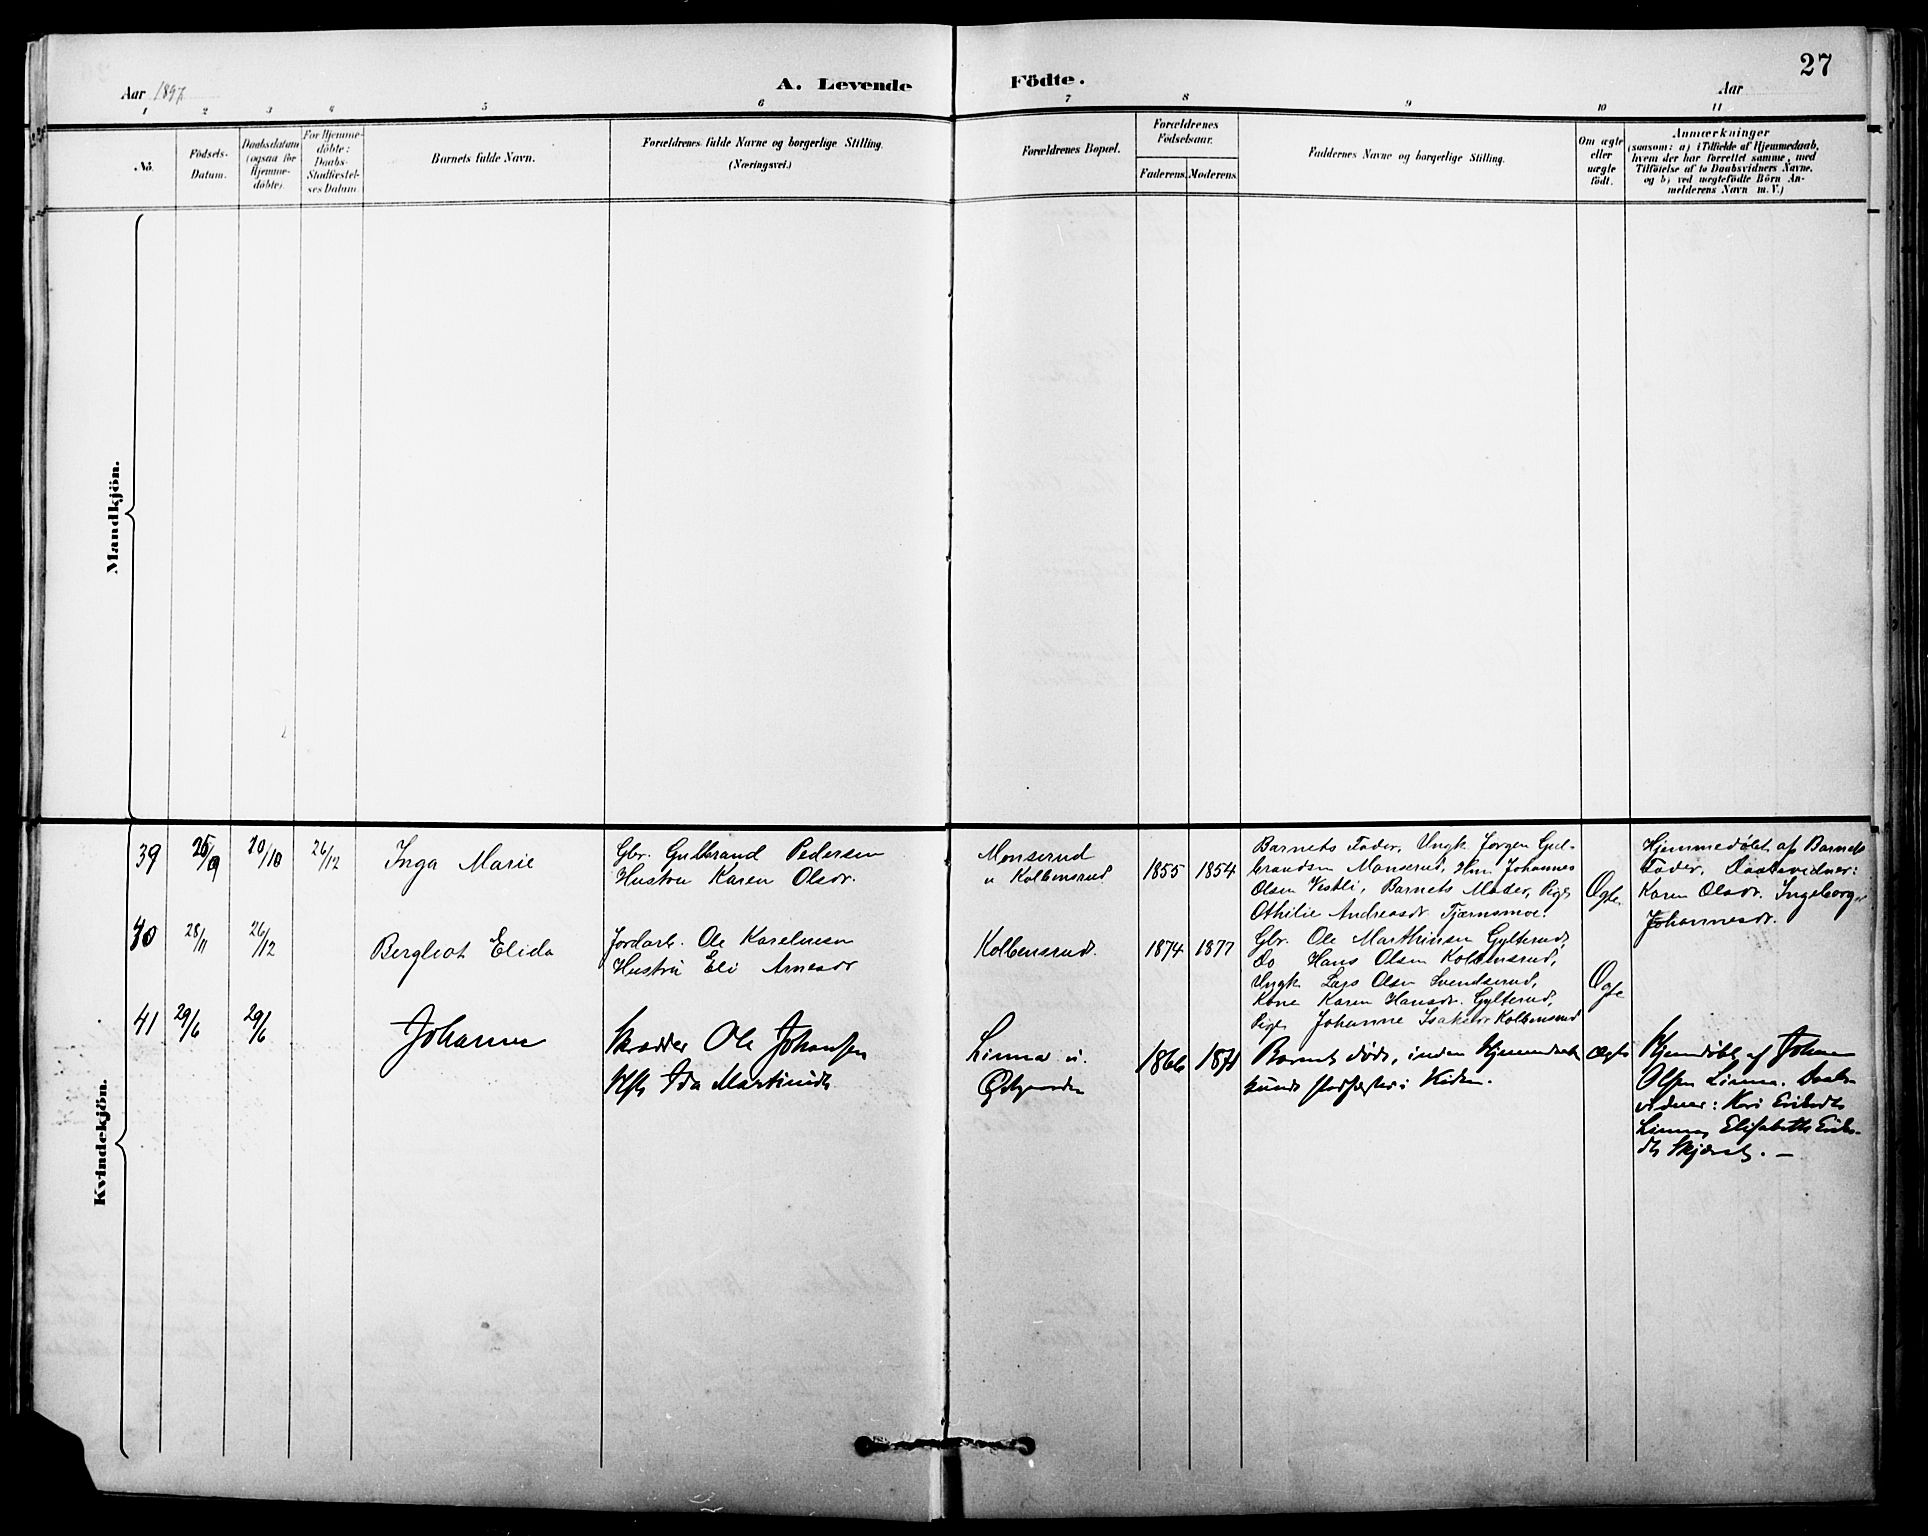 27
A. Levende Födte.
Aar 1897
Aar
1 2 3 4 5 6 7 8 9 10 11
No.
Födsels-
Datum.
Daabsdatum
(ogsaa for
Hjemme-
döbte).
For Hjemme-
döbte:
Daabs-
Stadfæstel-
ses Datum.
Barnets fulde Navn.
Forældrenes fulde Navne og borgerlige Stilling.
(Næringsvei.)
Forældrenes Bopæl.
Forældrenes
Födselsaar.
Faderens. Moderens.
Faddernes Navne og borgerlige Stilling.
Om ægte
eller
uægte
födt.
Anmærkninger
(saasom: a) i Tilfælde af Hjemmedaab,
hvem der har forrettet samme, med
Tilföielse af to Daabsvidners Navne,
og b) ved uægtefödte Börn An-
melderens Navn m. V.)
Mandkjön.
Kvindekjön.
39
26/9
20/10
26/12
Inga Marie
Gbr. Gulbrand Pedersen
Hustru Karen Olsdr.
Monserud
u Kolbensrud
1855
1854
Barnets Fader, Ungk Jørgen Gul-
brandsen Monserud, Hm. Johannes
Olsen Vestli, Barnets Moder, Pige
Othilie Andreasdr Tjærnsmoe.
Ægte.
Hjemmedøbt af Barnets
Fader, Daabsvidner:
Karen Olsdr. Ingeborg
Johannesdr.
40
28/11
26/12
Bergliot Elida
Jordarb. Ole Karelusen
Hustru Eli Arnesdr
Kolbensrud.
1874
1877
Gbr. Ole Marthinsen Gylterud,
Do Hans Olsen Kolbensrud,
Ungk Lars Olsen Svendserud,
Kone Karen Hansdr. Gylterud,
Pige Johanne Isaksdr Kolbensrud
Ægte
41
29/6
29/6
Johanne
Skrædder Ole Johansen
Hst Ida Martinidt
Linna u.
Østgaarden
1866
1871
Barnet døde, inden Hjemmedaaben
kunde stadfæstes i Kirken.
Ægte
Hjemdøbt af Johan
Olsen Linna. Daabs-
vidner: Kari Eriksdt
Linna, Elisabeth Eriks-
dt Skjæret. —